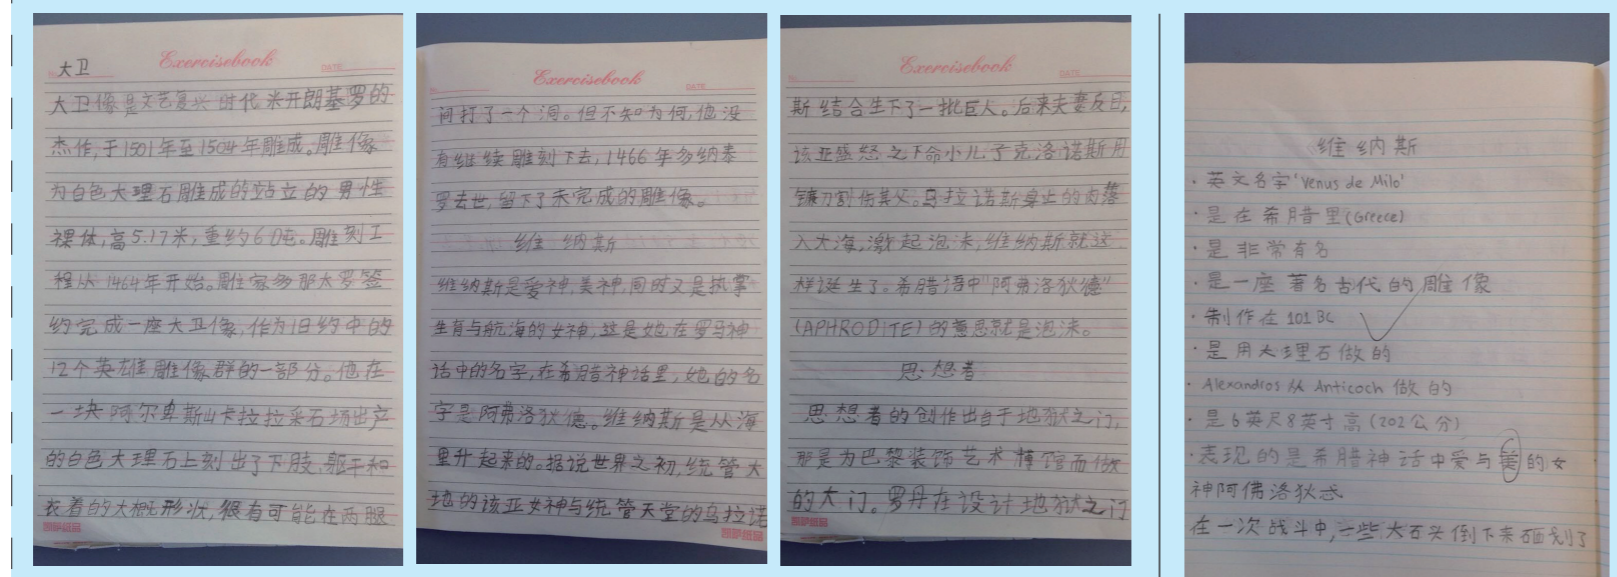 大卫
Exercisebook
No.
DATE
大卫像是文艺复兴时代米开朗基罗的
杰作,于1501年至1504年雕成。雕像
为白色大理石雕成的站立的男性
裸体,高5.17米,重约6吨。雕刻工
程从1464年开始。雕家多那太罗签
约完成一座大卫像,作为旧约中的
12个英雄雕像群的一部分。他在
一块阿尔卑斯山卡拉拉采石场出产
的白色大理石上刻出了下肢、躯干和
衣着的大概形状,很有可能在两腿
Exercisebook
No.
DATE
间打了一个洞。但不知为何,他没
有继续雕刻下去,1466年多纳泰
罗去世,留下了未完成的雕像。
维纳斯
维纳斯是爱神,美神,同时又是执掌
生育与航海的女神,这是她在罗马神
话中的名字,在希腊神话里,她的名
字是阿弗洛狄德。维纳斯是从海
里升起来的。据说世界之初,统管大
地的该亚女神与统管天堂的乌拉诺
Exercisebook
No.
DATE
斯结合生下了一批巨人。后来夫妻反目,
该亚盛怒之下命小儿子克洛诺斯用
镰刀割伤其父。乌拉诺斯身上的肉落
入大海,激起泡沫,维纳斯就这
样诞生了。希腊语中"阿弗洛狄德"
(APHRODITE)的意思就是泡沫。
思想者
思想者的创作出自于地狱之门,
那是为巴黎装饰艺术博馆而做
的大门。罗丹在设计地狱之门
维纳斯
·英文名字'Venus de Milo'
·是在希腊里(Greece)
·是非常有名
·是一座著名古代的雕像
·制作在101BC
·是用大理石做的
·Alexandros从Anticoch做的
·是6英尺8英寸高(202公分)
·表现的是希腊神话中爱与美的女
神阿佛洛狄忒
在一次战斗中,一些大石头倒下来砸到了